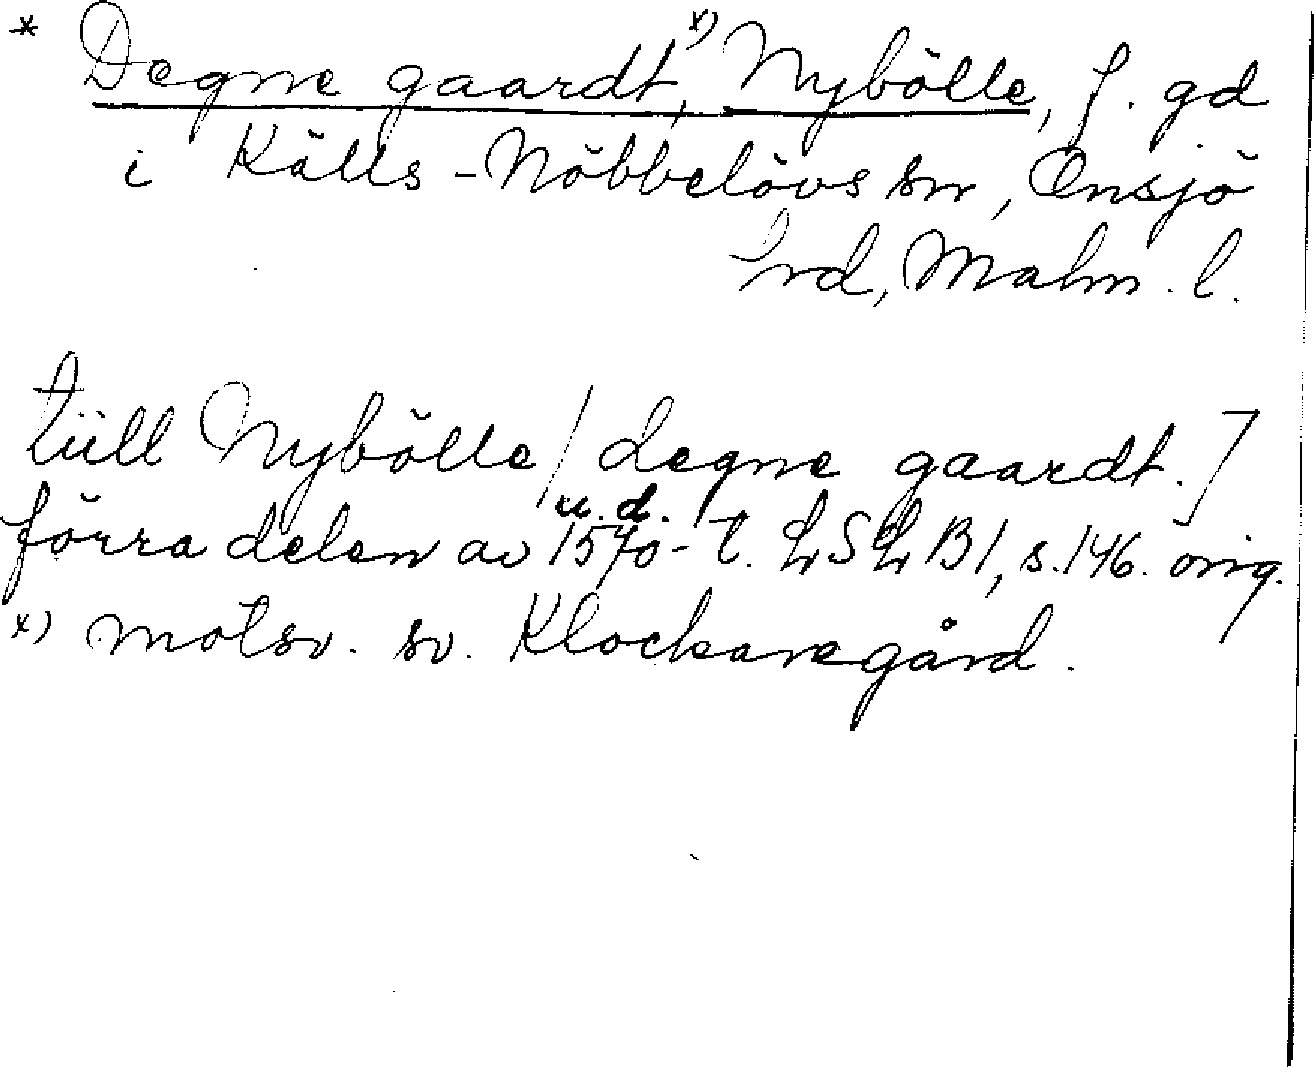 * Degne gaardt,ˣ⁾ Nybölle, f. gd
i Källs-Nöbbelövs sn, Onsjö
hrd, Malm. l.
tiill Nybölle / degne gaardt. /
u. d.
förra delen av 1570-t. LSLB1, s. 146. orig.
x) motsv. sv. Klockaregård.